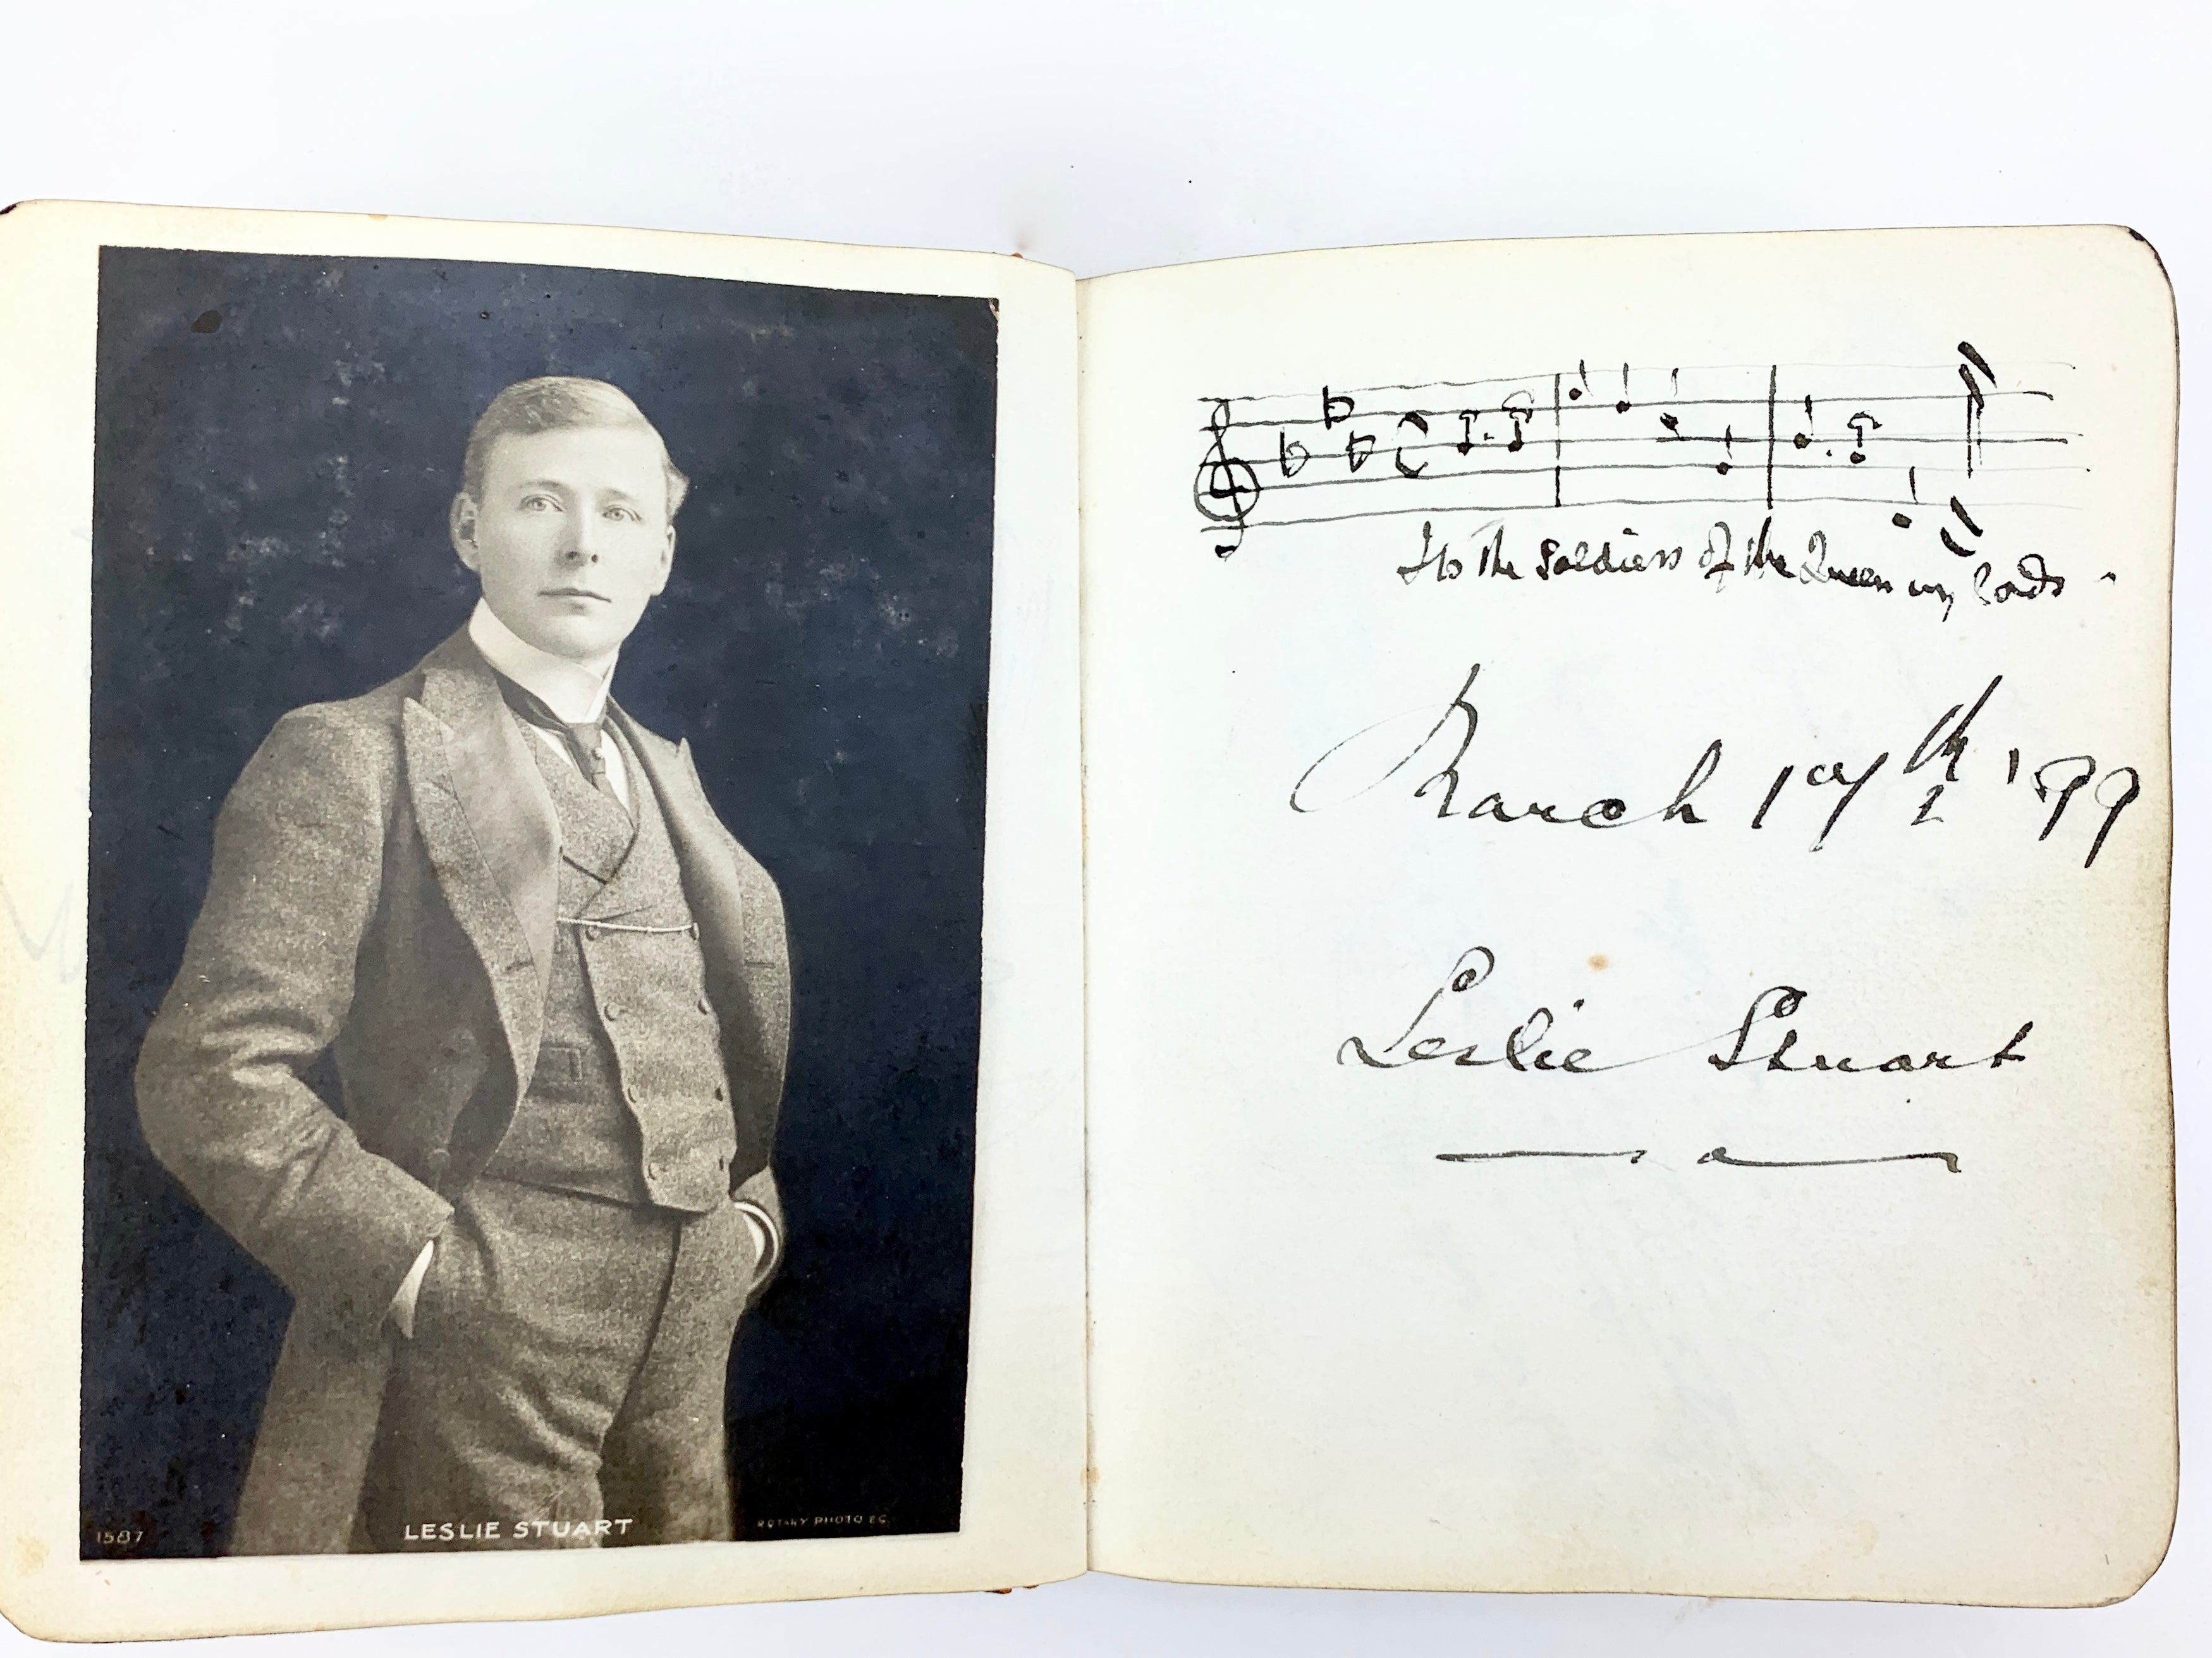 1587
LESLIE STUART
ROTARY PHOTO EC.
Its the Soldiers of the Queen my lads
March 17th '99
Leslie Stuart